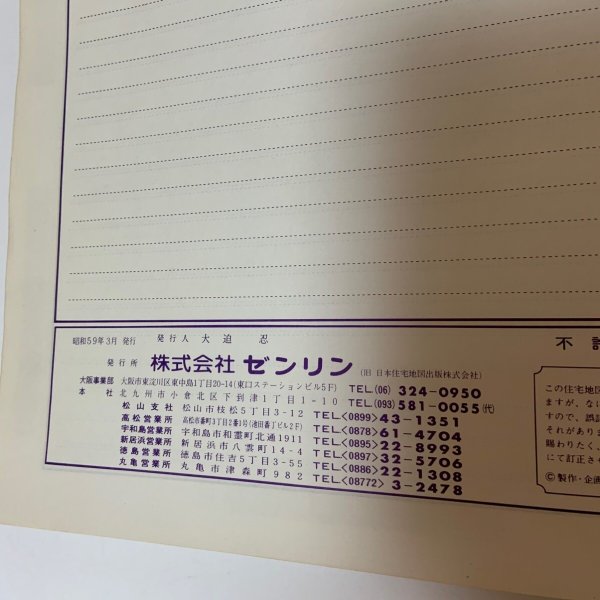 昭和59年3月 発行 発行人 大迫 忍
不
発行所 株式会社 ゼンリン (旧 日本住宅地図出版株式会社)
大阪事業部 大阪市東淀川区東中島1丁目20-14(東口ステーションビル5F) TEL.(06) 324-0950
本社 北九州市小倉北区下到津1丁目1-10 TEL.(093)581-0055(代)
松山支社 松山市枝松5丁目3-12 TEL<0899>43-1351
高松営業所 高松市番町3丁目2番1号(池田番丁ビル2F) TEL<0878>61-4704
宇和島営業所 宇和島市和霊町北通1911 TEL<0895>22-8993
新居浜営業所 新居浜市八雲町14-4 TEL<0897>32-5706
徳島営業所 徳島市住吉5丁目3-55 TEL<0886>22-1308
丸亀営業所 丸亀市津森町982 TEL<08772>3-2478
この住宅地
ますが、な
すので、誤
それがあり
賜わりたく、
にて訂正させ
©製作・企画